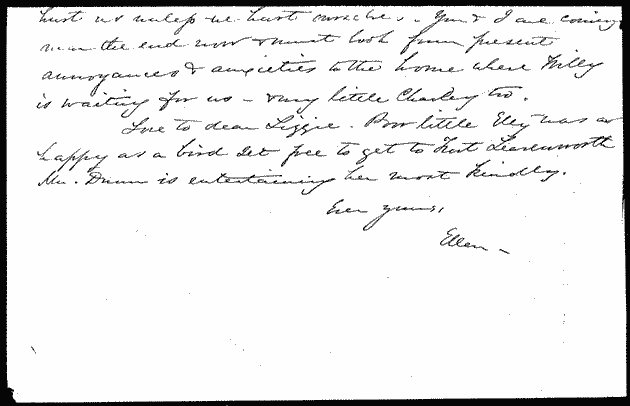 hurt us unless we hurt ourselves. You & I are coming
near the end now & must look from present
annoyances & anxieties to the home where Willy
is waiting for us - & my little Charley too.
Love to dear Lizzie. Poor little Elly was as
happy as a bird set free to get to Fort Leavenworth
Mrs. Dunn is entertaining her most kindly.
Ever yours,
Ellen -